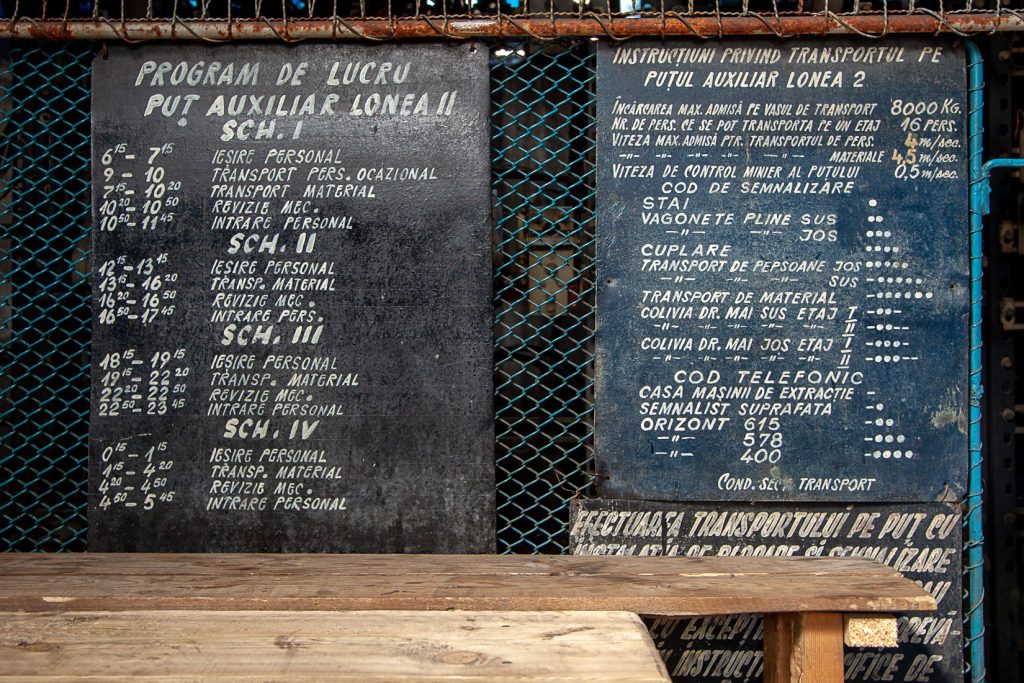 PROGRAM DE LUCRU
PUȚ AUXILIAR LONEA II
SCH. I
6¹⁵ – 7¹⁵ IEȘIRE PERSONAL
9 – 10 TRANSPORT PERS. OCAZIONAL
7¹⁵ – 10²⁰ TRANSPORT MATERIAL
10²⁰ – 10⁵⁰ REVIZIE MEC.
10⁵⁰ – 11⁴⁵ INTRARE PERSONAL
SCH. II
12¹⁵ – 13¹⁵ IEȘIRE PERSONAL
13¹⁵ – 16²⁰ TRANSP. MATERIAL
16²⁰ – 16⁵⁰ REVIZIE MEC.
16⁵⁰ – 17⁴⁵ INTRARE PERS.
SCH. III
18¹⁵ – 19¹⁵ IEȘIRE PERSONAL
19¹⁵ – 22²⁰ TRANSP. MATERIAL
22²⁰ – 22⁵⁰ REVIZIE MEC.
22⁵⁰ – 23⁴⁵ INTRARE PERSONAL
SCH. IV
0¹⁵ – 1¹⁵ IEȘIRE PERSONAL
1¹⁵ – 4²⁰ TRANSP. MATERIAL
4²⁰ – 4⁵⁰ REVIZIE MEC.
4⁵⁰ – 5⁴⁵ INTRARE PERSONAL
INSTRUCȚIUNI PRIVIND TRANSPORTUL PE
PUȚUL AUXILIAR LONEA 2
ÎNCĂRCAREA MAX. ADMISĂ PE VASUL DE TRANSPORT 8000 KG.
NR. DE PERS. CE SE POT TRANSPORTA PE UN ETAJ 16 PERS.
VITEZA MAX. ADMISĂ PTR. TRANSPORTUL DE PERS. 4 m/sec.
–〃– –〃– –〃– –〃– –〃– MATERIALE 4,5 m/sec.
VITEZA DE CONTROL MINIER AL PUȚULUI 0,5 m/sec.
COD DE SEMNALIZARE
STAI •
VAGONETE PLINE SUS ••
–〃– –〃– JOS •••
CUPLARE ••••
TRANSPORT DE PEPSOANE JOS –•••••–
–〃– –〃– –〃– SUS –••••••–
TRANSPORT DE MATERIAL –•••••••–
COLIVIA DR. MAI SUS ETAJ I –•••–
–〃– –〃– –〃– –〃– II –•••––
COLIVIA DR. MAI JOS ETAJ I –••••–
–〃– –〃– –〃– –〃– II –••••––
COD TELEFONIC
CASA MAȘINII DE EXTRACȚIE –
SEMNALIST SUPRAFATA –•
ORIZONT 615 –•••
–〃– 578 –••••
–〃– 400 –•••••
COND. SECT. TRANSPORT
EFECTUAREA TRANSPORTULUI PE PUȚ CU
INSTALAȚIA DE BLOCARE ȘI SEMNALIZARE
CU EXCEPȚI
INSTRUCȚI